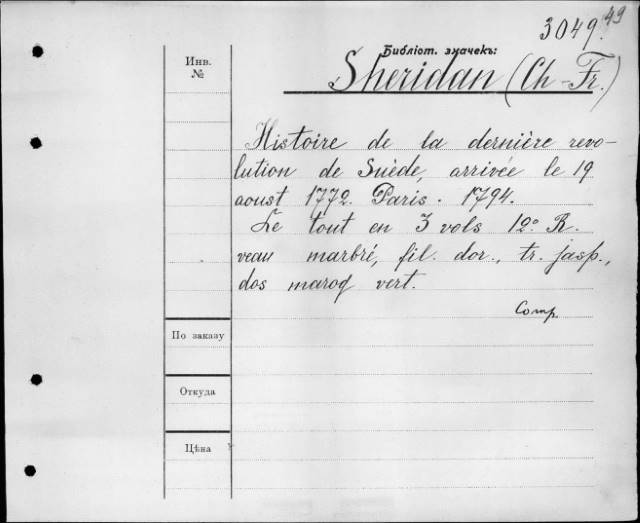 3049.49
Инв.
№
Библіот. значекъ:
Sheridan (Ch-Fr.)
Histoire de la dernière revo-
lution de Suède, arrivée le 19
aoust 1772. Paris. 1794.
Le tout en 3 vols 12° R.
veau marbré, fil. dor., tr. jasp.,
dos maroq vert.
Comp.
По заказу
Откуда
Цѣна